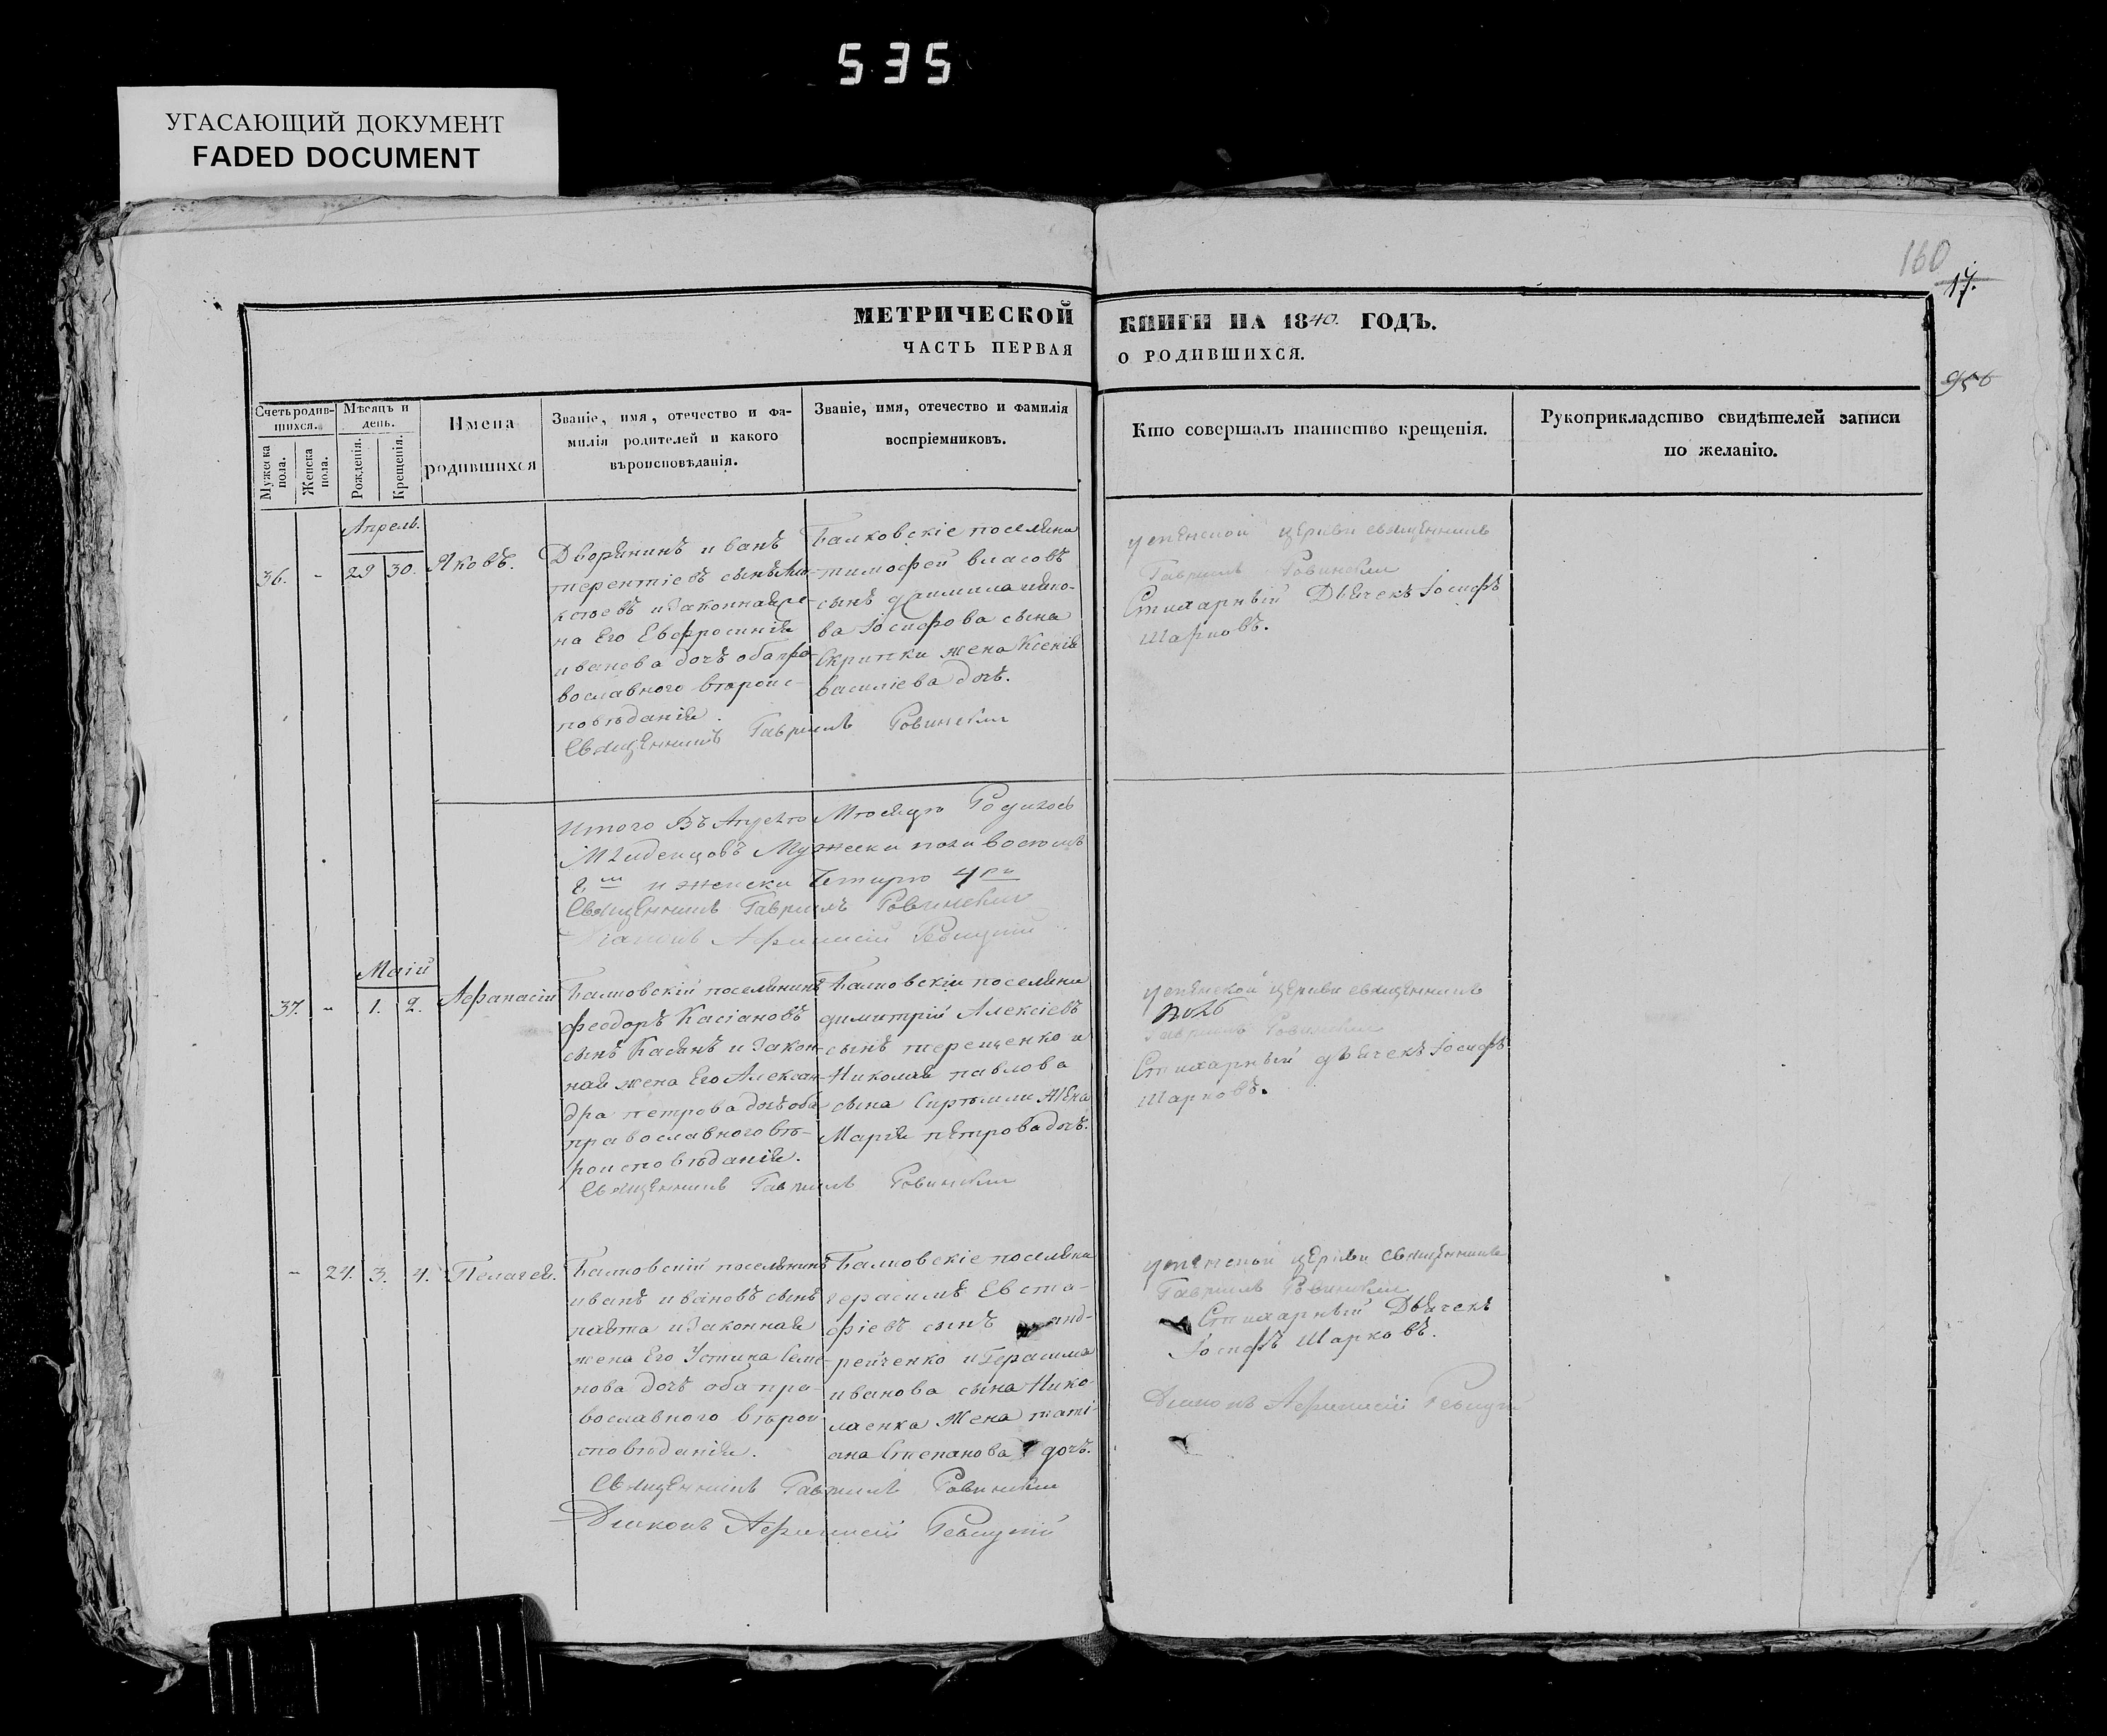 535
УГАСАЮЩИЙ ДОКУМЕНТ
FADED DOCUMENT
160
17.
МЕТРИЧЕСКОЙ КНИГИ НА 1840. ГОДЪ.
ЧАСТЬ ПЕРВАЯ О РОДИВШИХСЯ.
Счетъ родив-
шихся.
Мужеска пола.
Женска пола.
Мѣсяцъ и
день.
Рожденія.
Крещенія.
Имена
родившихся
Званіе, имя, отечество и фа-
милія родителей и какого
вѣроисповѣданія.
Званіе, имя, отечество и фамилія
воспріемниковъ.
Кто совершалъ таинство крещенія.
Рукоприкладство свидѣтелей записи
по желанію.
Апрель.
36. - 29 30. Яковъ.
Дворянинъ иванъ
терентіевъ сынъ
и законная же-
на Его Евфросинія
иванова дочъ оба пра-
вославного вѣроис-
повѣданія.
Священникъ Гавріилъ Ровинскій
Балковскіе поселяни
тимофей власовъ
сынъ
ва Іосифова сына
Скрипки жена Ксенія
василіева дочъ.
успенской церкви священникъ
Гавріилъ Ровинскій
Стихарный Дьячекъ Іосифъ
Шарковъ.
итого Въ Мѣсяцѣ Родилось
Младенцовъ Мужеска пола восемь
8. и женска Четыре 4ри
Священникъ Гавріилъ Ровинскій
Діаконъ Афанасій
Маій
37. - 1. 2. Афанасій
Балковскій поселянинъ
феодоръ Касіановъ
сынъ Касянъ и Закон-
ная жена Его Алексан-
дра петрова дочъ оба
православного вѣ-
роисповѣданія.
Священникъ Гавріилъ Ровинскій
Балковскіи поселяни
димитрій Алексіевъ
сынъ терещенко и
Николая павлова
сына жена
Марія петрова дочъ.
успенской церкви священникъ
Гавріилъ Ровинскій
Стихарный дьячекъ Іосифъ
Шарковъ.
- 24. 3. 4. Пелагея.
Балковскій поселянинъ
иванъ ивановъ сынъ
и Законная
жена Его Устина Семе-
нова дочъ оба пра-
вославного вѣрои
сповѣданія.
Священникъ Гавріилъ Ровинскій
Діаконъ Афанасій
Балковскіе поселяни
герасимъ Евста-
фіевъ сынъ анд-
рейченко и Герасима
иванова сына Нико-
лаенка Жена тати-
ана Степанова дочъ.
успенской церкви священникъ
Гавріилъ Ровинскій
Стихарный Дьячекъ
Іосифъ Шарковъ.
Діаконъ Афанасій